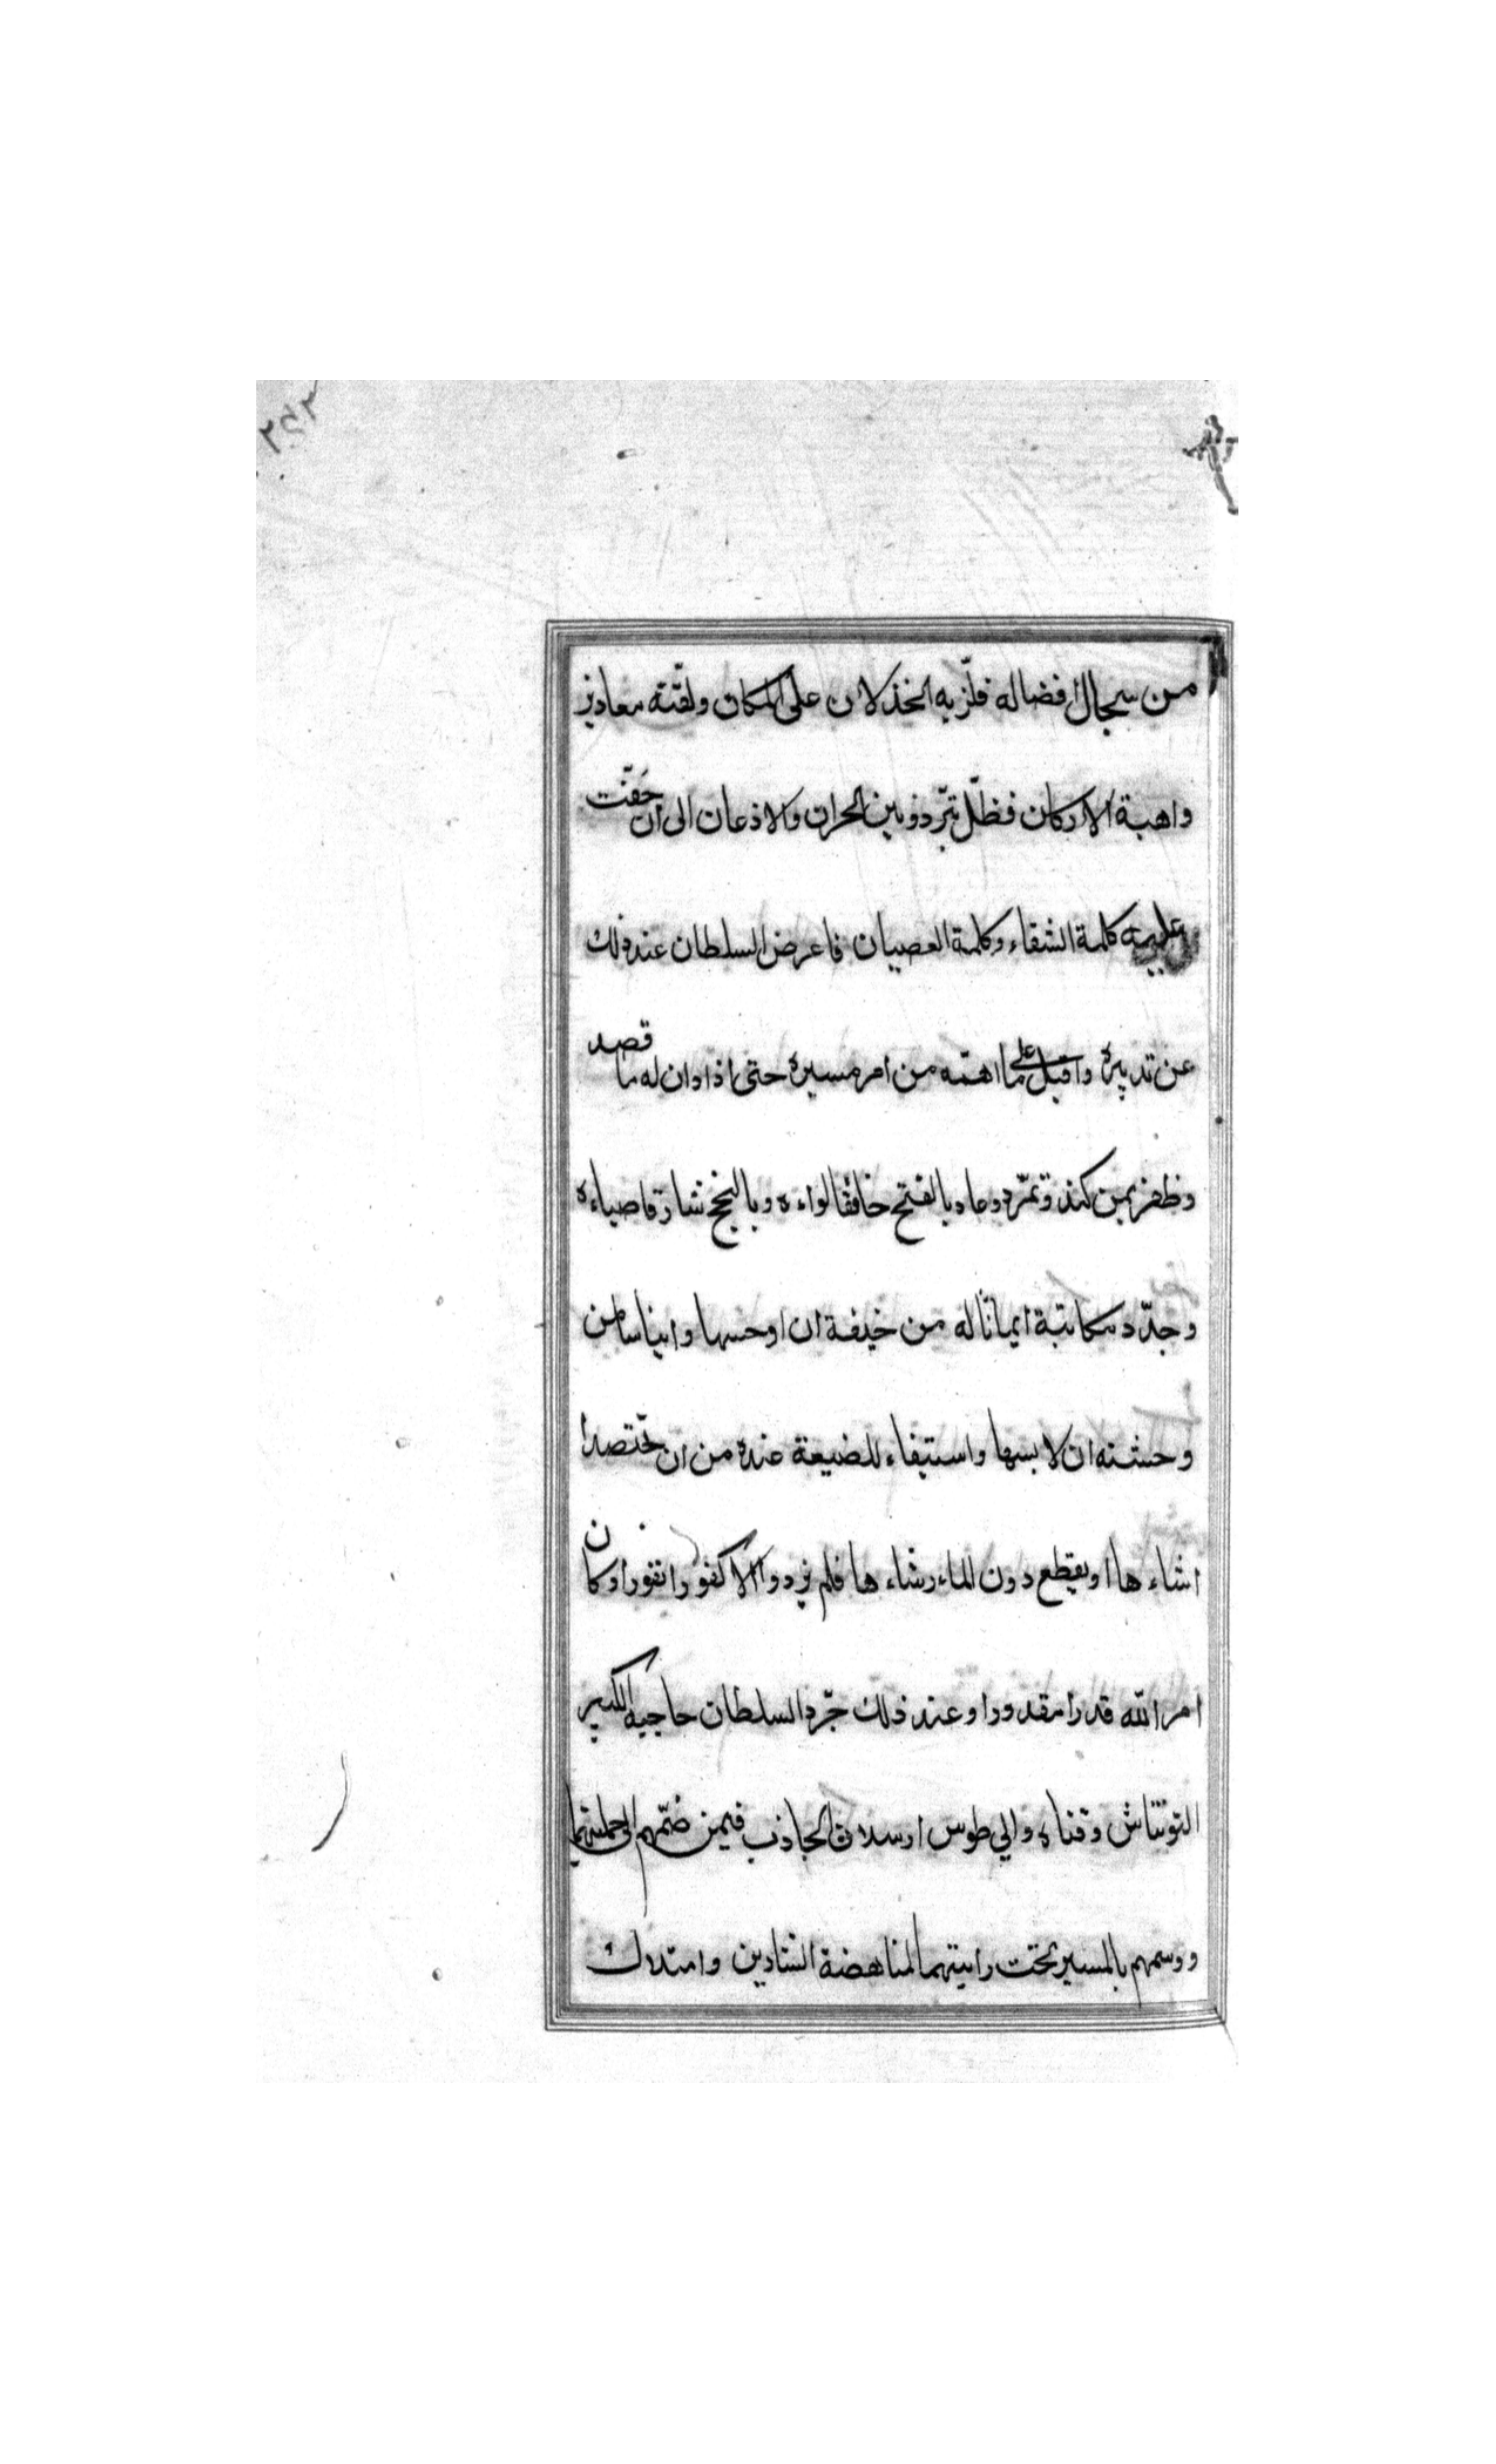 من سجال افضاله فلزّ به الخذلان على المكان ولقّنه معاذير
واهية الاركان فظلّ يتردد بين الحران والاذعان الى ان حقّت
عليه كلمة الشقاء وكلمة العصيان فاعرض السلطان عند ذلك
عن تدبيره واقبل على ما اهمّه من امر مسيره حتى اذا دان له ما قصد
وظفر بمن كند وتمرّد وعاد بالفتح خافقا لواءه وبالنجح شارقا ضياءه
وجدّد مكاتبة ايمانا له من خيفة ان اوحسها وايناسا من
وحشته ان لابسها واستبقاء للضيعة عنده من ان تختصد ا
نشاءها او يقطع دون الماء رشاءها فلم يزدد الا كفورا نفورا وكان
امر الله قدرا مقدورا وعند ذلك جرّد السلطان حاجبه الكبير
التونتاش وقناه والي طوس ارسلان الجاذب فيمن ضمّهم الى جملتهما
ووسمهم بالمسير تحت رايتهما لمناهضة الشارين وامتلاك